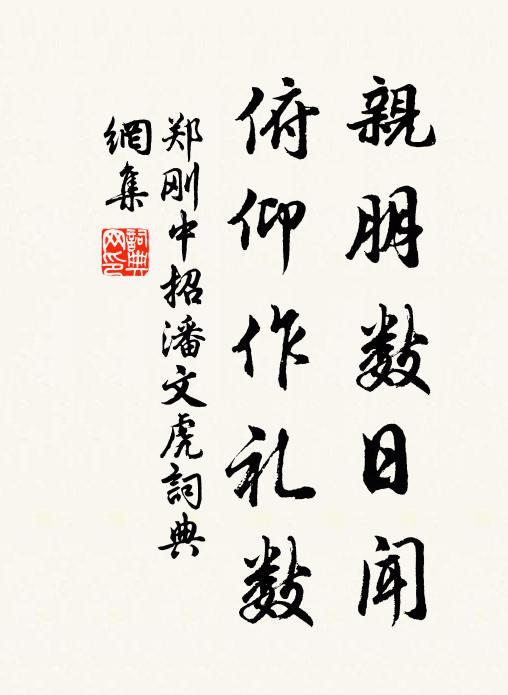 親朋数日闻
俯仰作礼数
郑刚中招潘文虎詞典
網集
詞典
网印